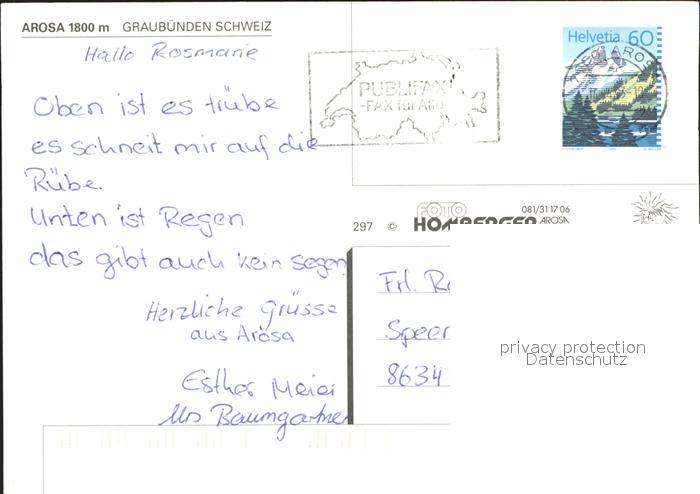 AROSA 1800 m GRAUBÜNDEN SCHWEIZ
Hallo Rosmarie
Oben ist es trübe
es schneit mir auf die
Rübe.
Unten ist Regen
das gibt auch kein segen
Herzliche Grüsse
aus Arosa
Esther Meier
Urs Baumgartner
PUBLIFAX
-FAX für Alle
Helvetia 60
AROSA
FOTO
081/31 17 06
297 © HOMBERGER AROSA
Frl.
Speer
8634
privacy protection
Datenschutz